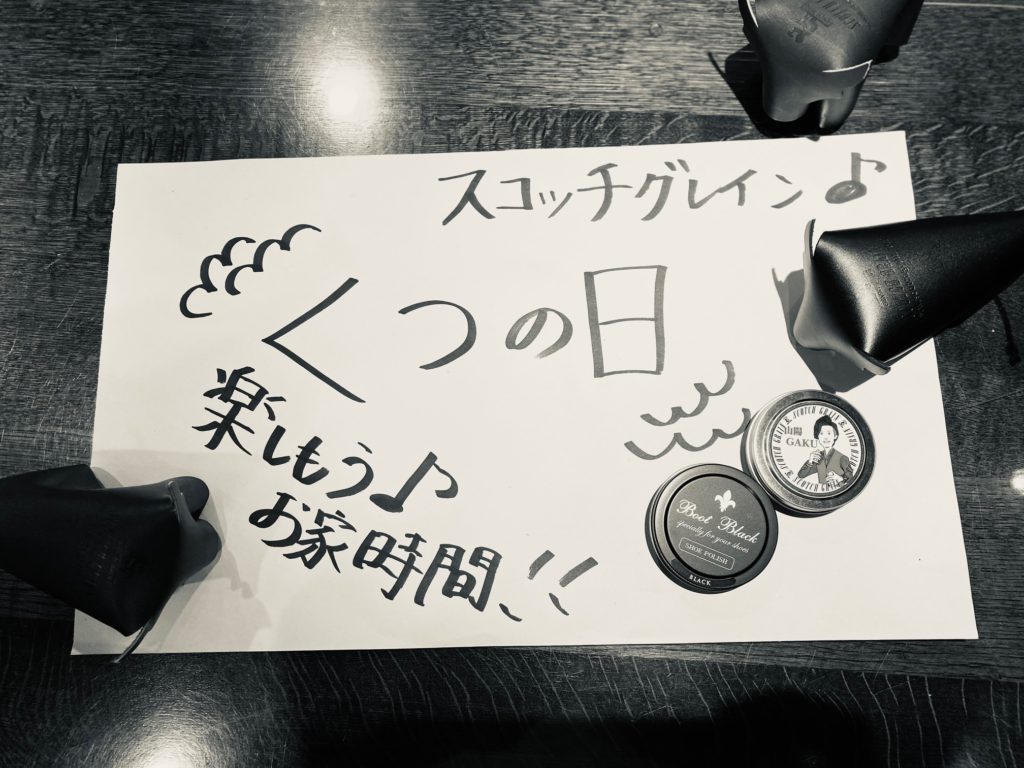 スコッチグレイン♪
くつの日
楽しもう♪
お家時間!!
SCOTCH GRAIN & SCOTCH GRAIN &
山陽
GAKU
Boot Black
specially for your shoes
SHOE POLISH
BLACK